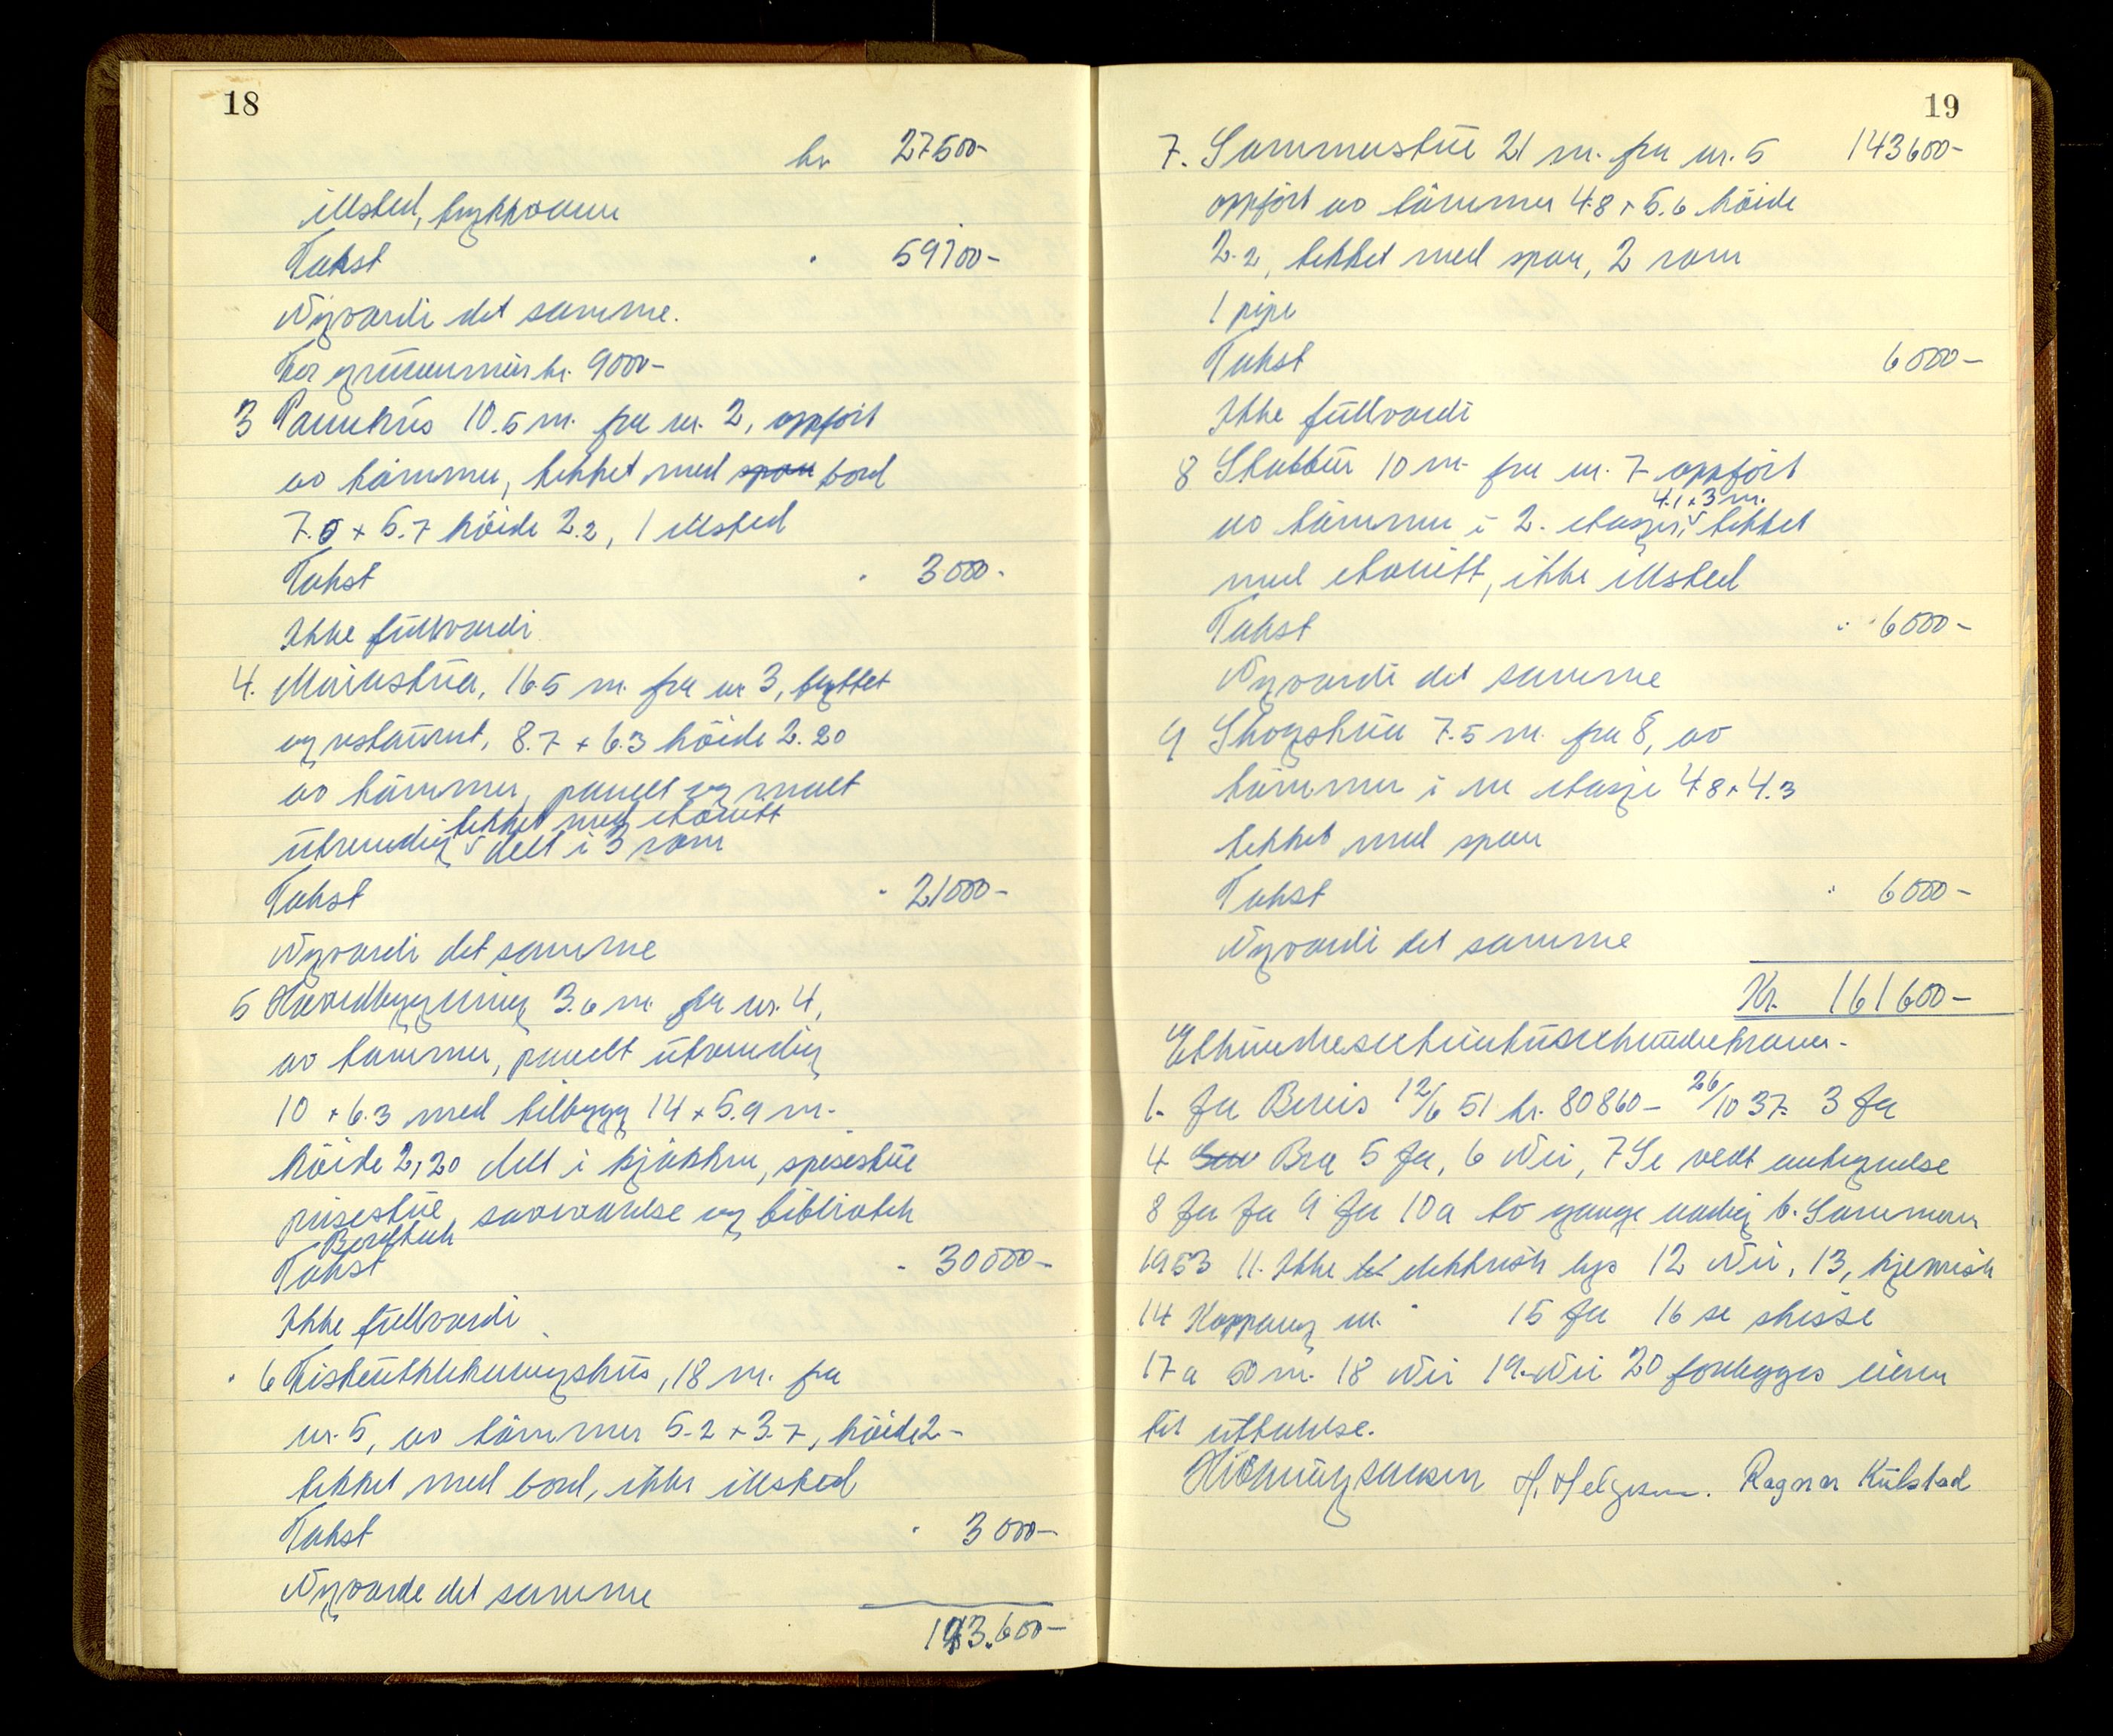 18
kr 27500-
illsted, trykkvann
Takst " 59100-
Nyverdi det samme.
For grunnmur kr. 9000-
3 Pannehus 10.5 m. fra nr. 2, oppfört
av tömmer, tekket med span bord
7.5 x 5.7 höide 2.2, 1 illsted
Takst " 3000-
Ikke fullverdi
4. Mariastua, 16.5 m. fra nr 3, flyttet
og restaurert, 8.7 x 6.3 höide 2.20
av tömmer, panelt og malt
tekket med eternitt
utvendig v delt i 3 rom
Takst " 21000-
Nyverdi det samme
5 Hovedbygging 3.6 m. fra nr. 4,
av tömmer, panelt utvendig
10 x 6.3 med tilbygg 14 x 5.9 m.
höide 2,20 delt i kjökken, spisestue
peisestue, soveværelse og bibliotek
Takst " 30000-
Ikke fullverdi
6 Fiskeutklekningshus, 18 m. fra
nr. 5, av tömmer 5.2 x 3.7, höide 2-
tekket med bord, ikke illsted
Takst " 3000-
Nyverde det samme
143.600-
19
7. Sommerstue 21 m. fra nr. 5 143600-
oppfört av tömmer 4.8 x 5.6 höide
2.2, tekket med spon, 2 rom
1 pipe
Takst 6000-
Ikke fullverdi
8 Stabbur 10 m. fra nr. 7 oppfört
4.1 x 3 m.
av tömmer i 2. etasjer, v tekket
med eternitt, ikke illsted
Takst " 6000-
Nyverdi det samme
9 Skogstua 7.5 m. fra 8, av
tömmer i en etasje 4.8 x 4.3
tekket med spon
Takst " 6000-
Nyverdi det samme
Kr. 161600-
Etthundresekstientusensekshundrekroner-
1. Ja Bereis 12/6 51 kr. 80860- 26/10 37. 3 Ja
4 Bra 5 Ja, 6 Nei, 7 Se vedt antegnelse
8 Ja Ja 9 Ja 10a to gange årlig b. Sommeren
1953 11. Ikke elektrisk lys 12 Nei, 13, kjemisk
14 Koppang st. " 15 Ja 16 se skisse
17 a 50 m. 18 Nei 19. Nei 20 forelegges eieren
til uttalelse.
H. Helgesen. Ragnar Kulstad